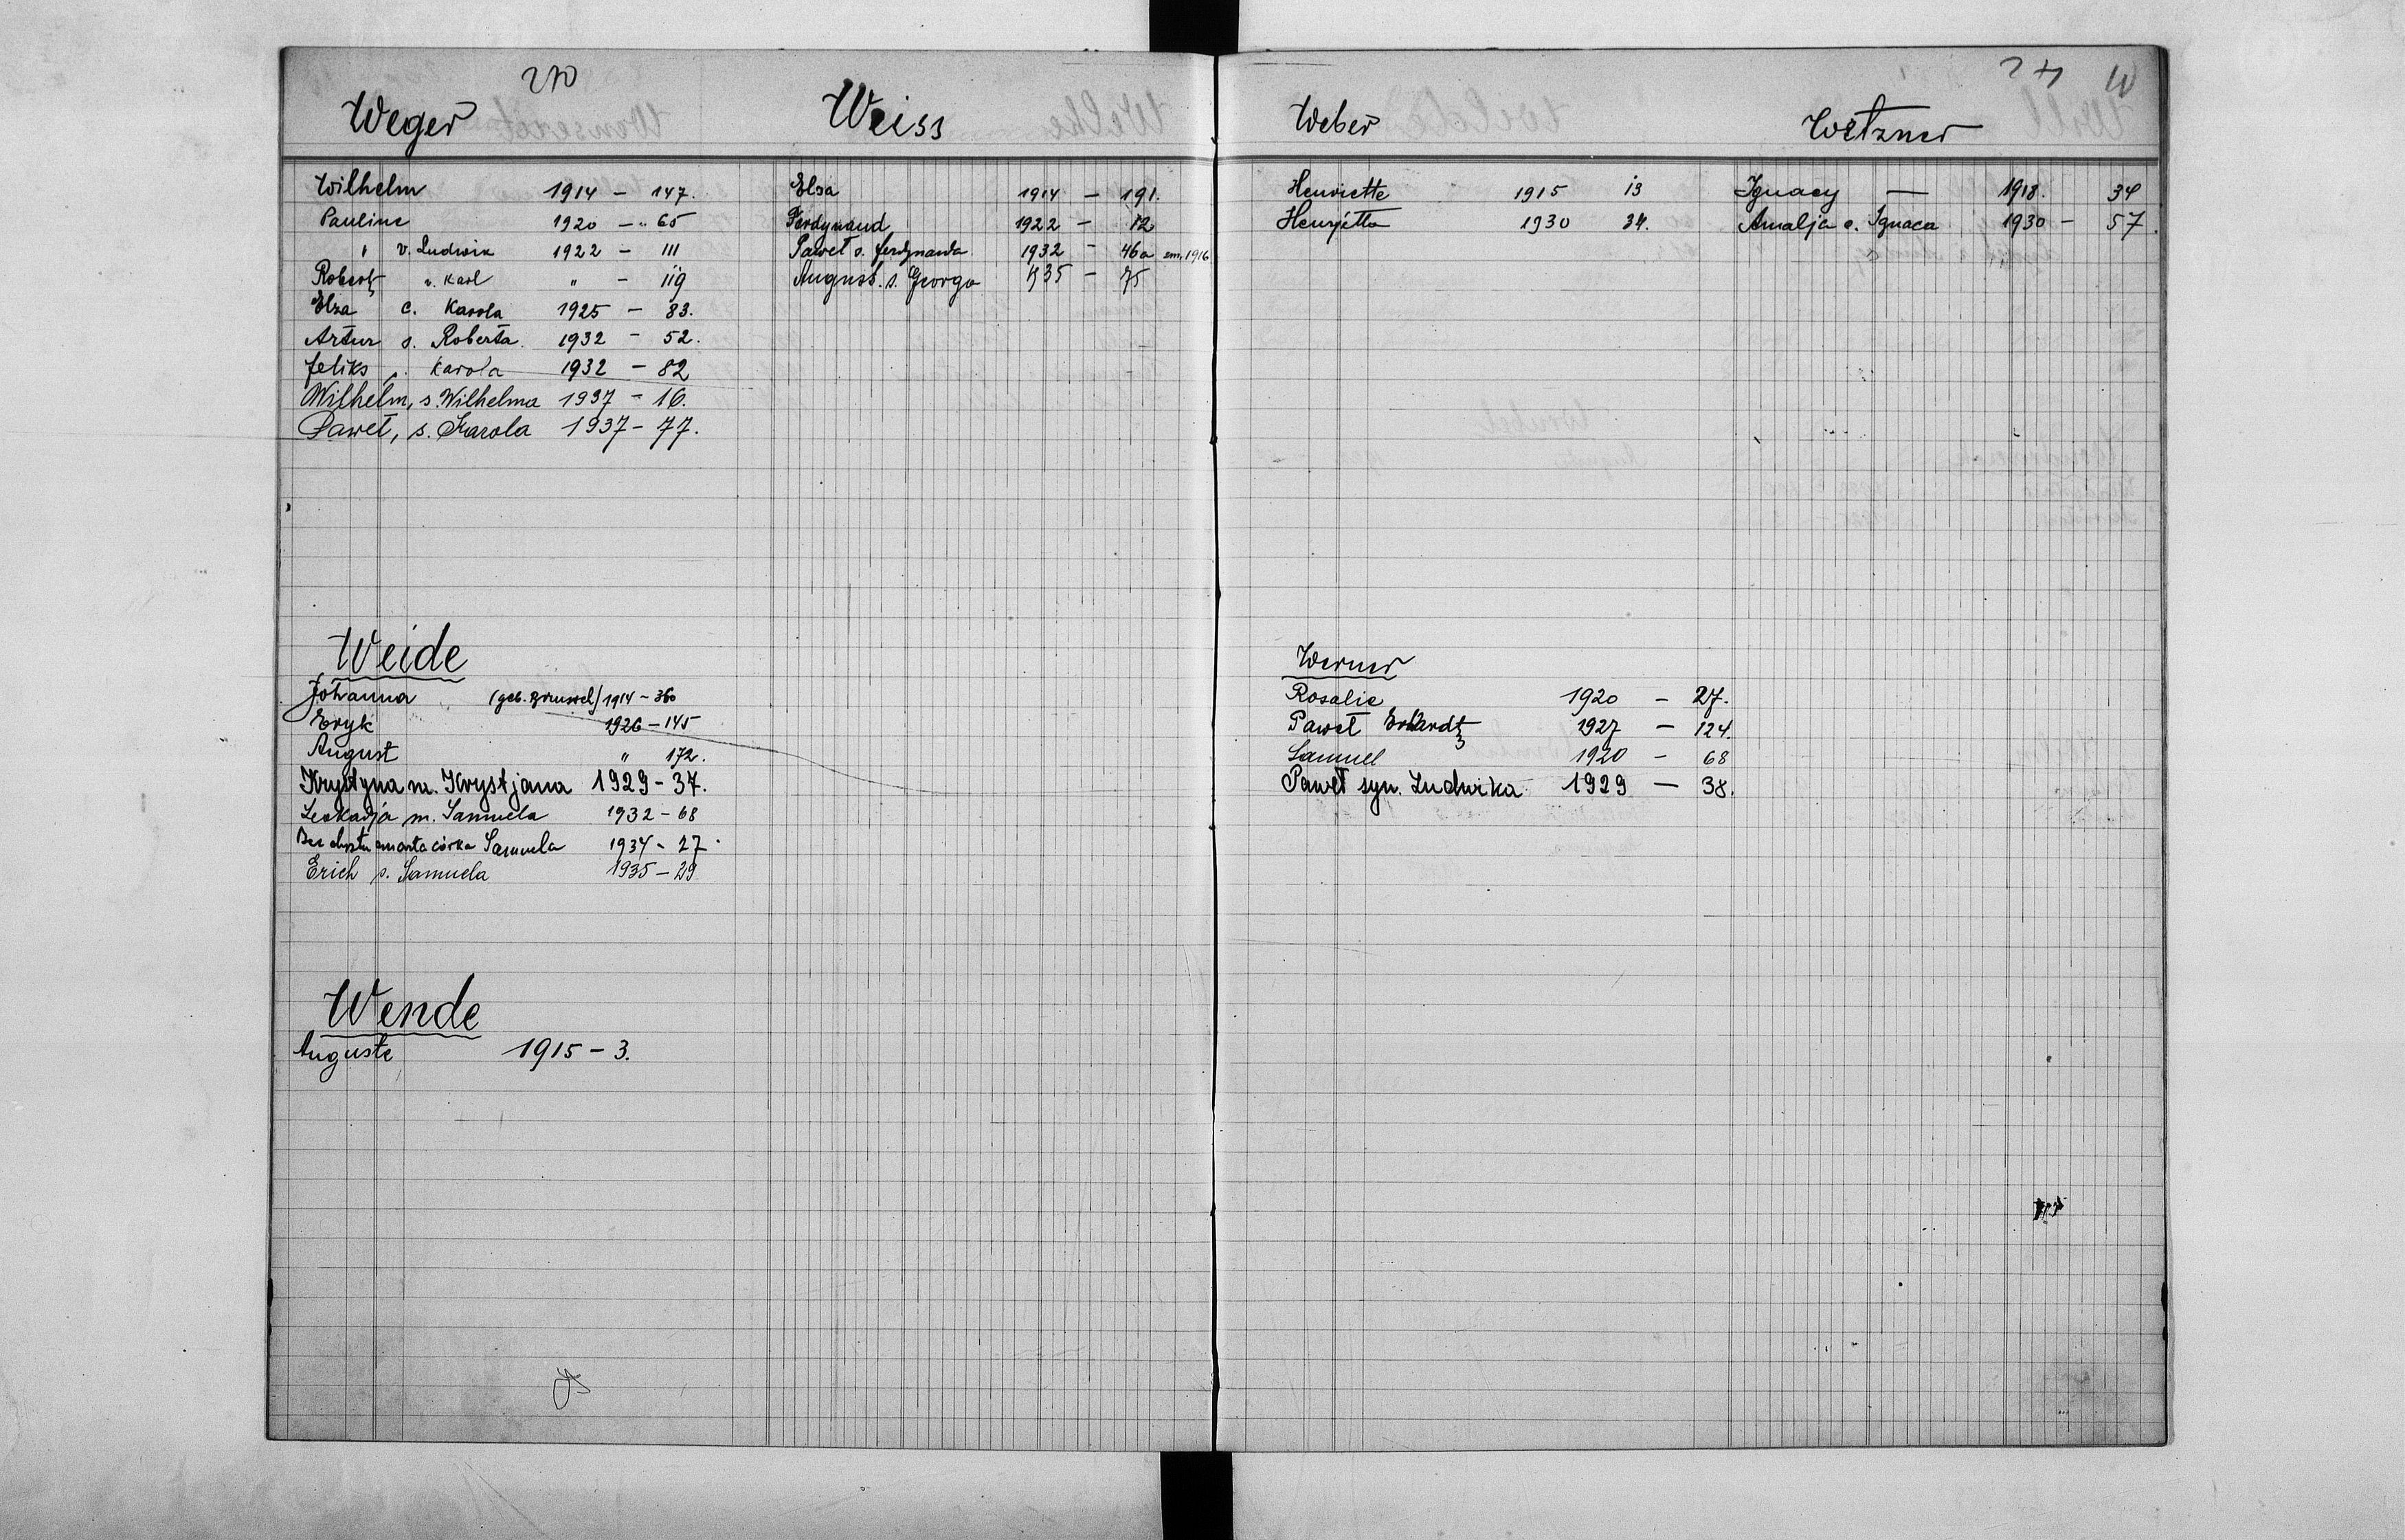 270
Weger
Wilhelm 1914 - 147.
Pauline 1920 - 65
" v. Ludwik 1922 - 111
Robert v. Karl " - 119
Elza c. Karola 1925 - 83.
Artur s. Roberta 1932 - 52.
Feliks s. Karola 1932 - 82
Wilhelm, s. Wilhelma 1937 - 16.
Paweł, s. Karola 1937 - 77.
Weide
Johanna (geb. 1914 - 360
Eryk 1926 - 145
August " 172.
Krystyna m. Krystjana 1929 - 37.
Leokadja m. Samuela 1932 - 68
Bez chrztu zmarła córka Samuela 1934 - 27.
Erich s. Samuela 1935 - 29
Wende
Auguste 1915 - 3.
Weiss
Elsa 1914 - 191.
Ferdynand 1922 - 12
Paweł s. Ferdynanda 1932 - 46a zm. 1916
August. s. Georga 1935 - 75
W
Weber
Henriette 1915 13
Henrjetta 1930 34.
Werner
Rosalie 1920 - 27.
Paweł 1927 - 124.
Samuel 1920 - 68
Paweł syn. Ludwika 1929 - 38.
Wetzner
Ignacy — 1918. 34
Amalja c. Ignaca 1930 - 57.